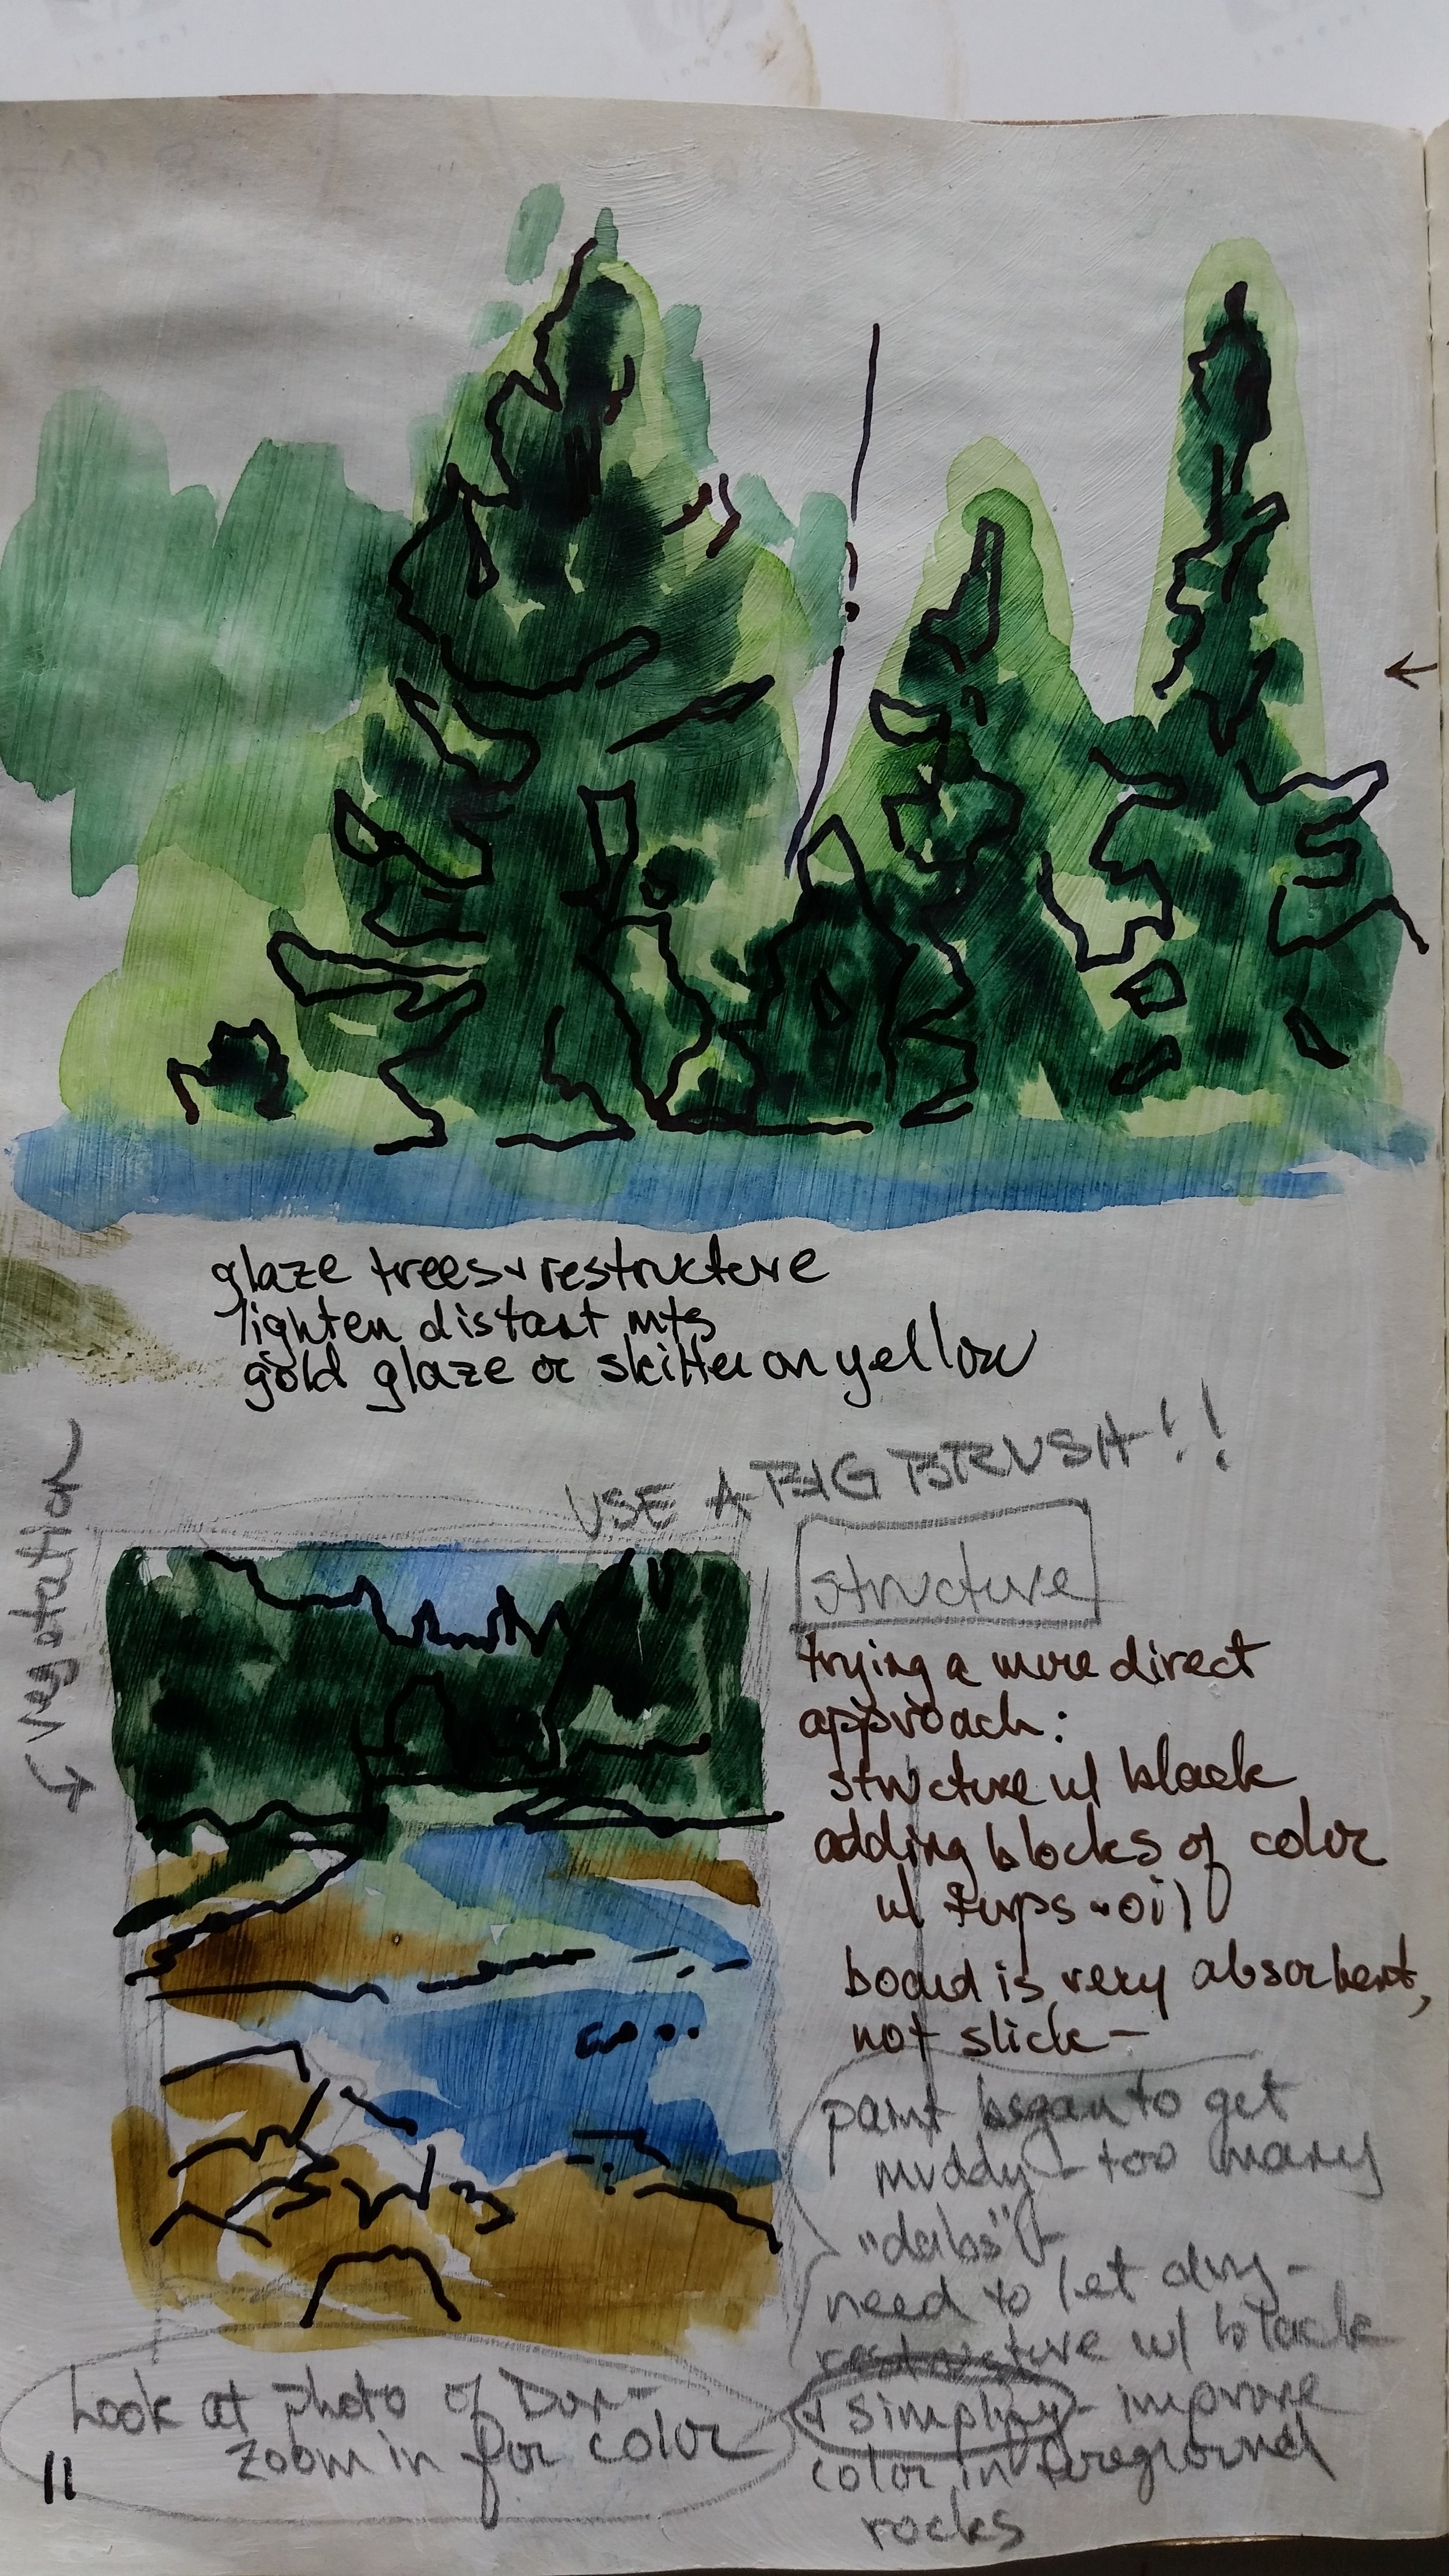 glaze trees + restructure
lighten distant mts
gold glaze or skitter on yellow
USE A BIG BRUSH!!
vegetation
structure
trying a more direct
approach:
structure w/ black
adding blocks of color
w/ turps + oil
board is very absorbent,
not slick –
paint began to get
muddy – too many
"dabs" –
need to let dry –
restructure w/ black
+ simplify – improve
color in foreground
rocks
Look at photo of
zoom in for color
11